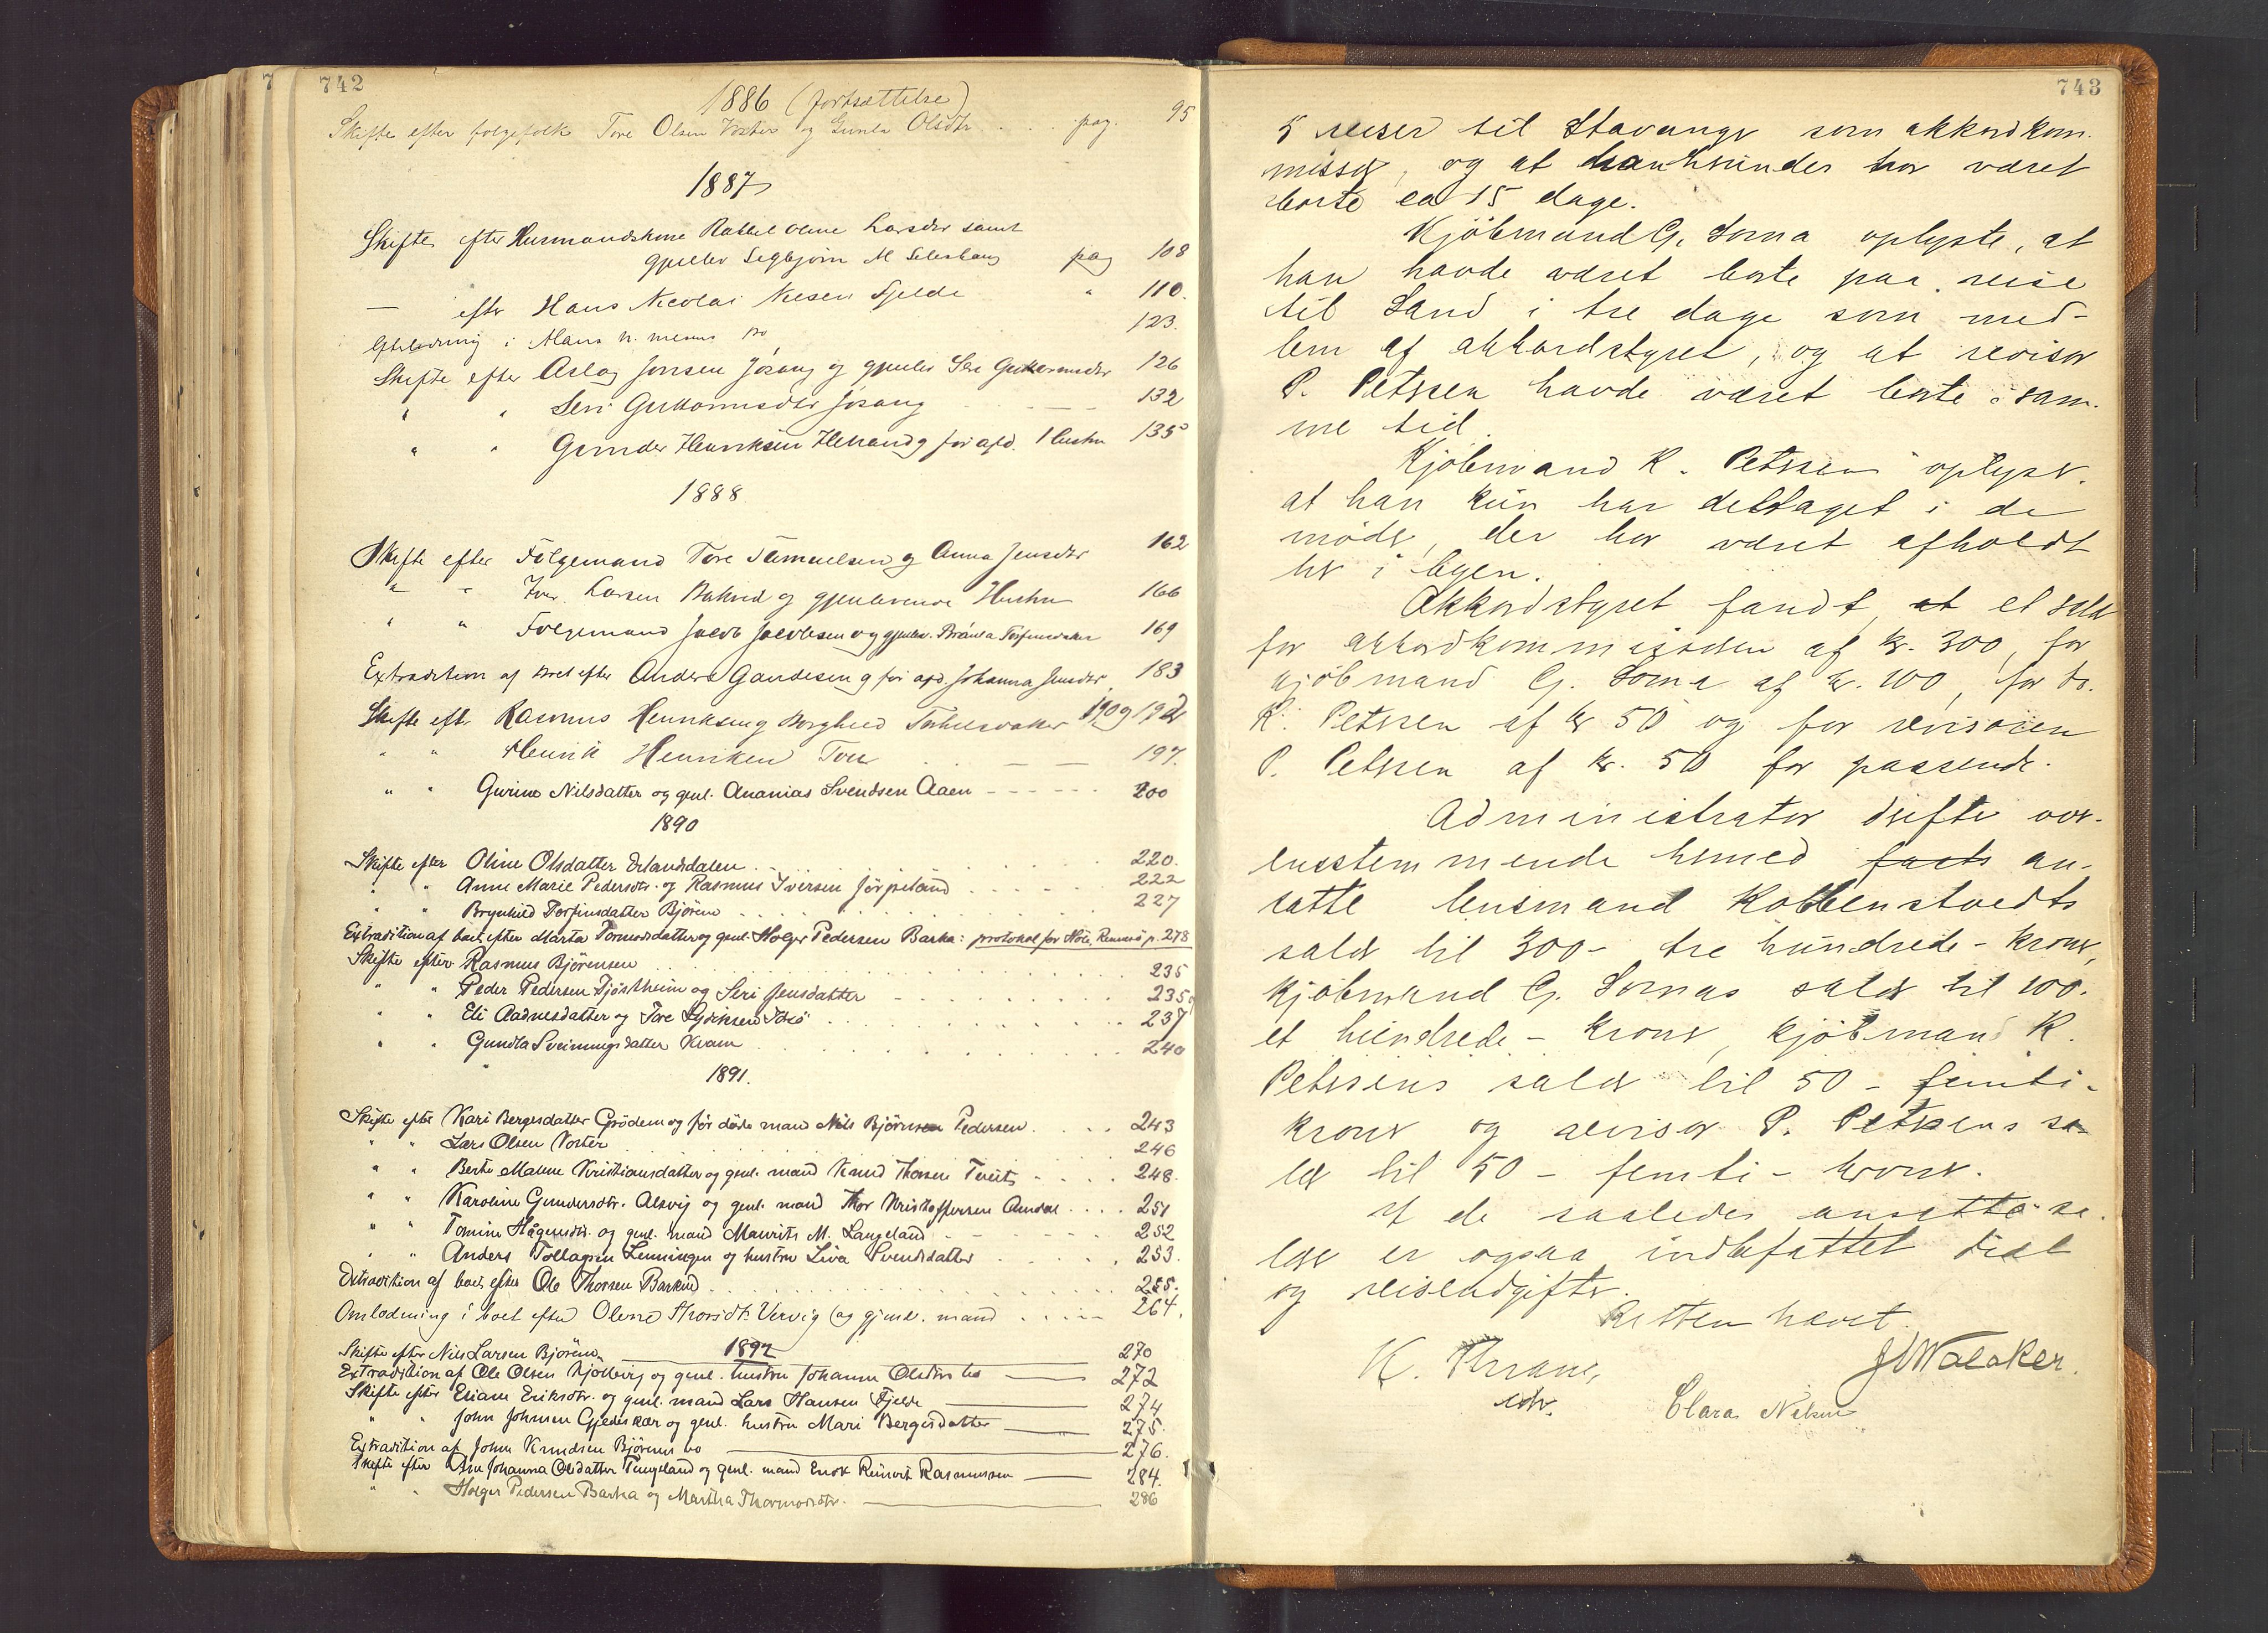 742
1886 (fortsættelse)
Skifte efter følgefolk Tore Olsen Voster og Gunla Olsdtr . . . pag. 95
1887
Skifte efter Husmandskone Rakkel Oline Larsdtr samt
gjenlev Segbjørn M Selerhaug pag 108
— efter Hans Nicolai Nilsen Fjelde " 110.
i Hans N. bo 123.
Skifte efter Aslag Jonsen Jøsang og gjenlev Seri Guttormsdtr 126
" " Seri Guttormsdtr Jøsang — — 132
" " Gunder Henriksen Helland og før afd. Hustru 135
1888
Skifte efter Følgemand Tore Samuelsen og Anna Jensdtr 162
" " Iver Larsen Bakved og gjenlevende Hustru 166
" " Følgemand Jacob Jacobsen og gjenlev. Torfinnsdatter 169
Extradition af boet efter Anders Gaudesen og før afd. Johanna Jensdtr 183
Skifte eftr Rasmus Henriksen og Borghild Torkelsdatter 190 og 192
" " Henrik Henriksen Tou — — 197.
" " Gurine Nilsdatter og genl. Ananias Svendsen Aaen - - - - - - 200
1890
Skifte efter Oline Olsdatter Erlandsdalen . . 220.
" " Anne Marie Pedersdtr. og Rasmus Iversen Jørpeland . . . . 222
" " Brynhild Torfinsdatter Bjørheim . . . . 227
Extradition af boet efter Marta Tormodsdatter og genl. Holger Pedersen Barka: protokol for Høle, Rennesø p. 278
Skifte efter Rasmus Bjørensen . . . . 235
" " Peder Pedersen Tjøstheim og Seri Jensdatter . . . . 235
" " Eli Aadnesdatter og Tore Gjeriksen Idsø . . . . 237
" " Gundla Sveinungsdatter Kvam . . . . 240
1891.
Skifte efter Kari Bergesdatter Grødem og før døde mand Nils Bjørnsen Pedersen . . . . 243
" " Lars Olsen Voster 246
" " Berte Malene Kristiansdatter og genl. mand Knud Thorsen Tveit . . . . 248.
" " Karoline Gundersdtr. Alsvig og genl. mand Thor Kristoffersen Amdal . . . . 251
" " Tomine Hågensdtr. og genl. mand Maurits M. Langeland 252
" " Anders Tollagsen Lenningen og hustru Liva Svendsdatter . . 253.
Extradition af boet efter Ole Thorsen Barkved . . . . 255.
Omlodning i boet efter Olene Thorsdt. Vervig (og gjenl. mand . . . . 264.
1892
Skifte efter Nils Larsen Bjørheim 270
Extradition af Ole Olsen Kjøllevig og genl. hustru Johanne Olsdtrs bo 272
Skifte efter Eliane Eriksdtr. og genl. mand Lars Hansen Fjelde 274
" " John Johnsen Gjederskær og genl. hustru Mari Bergesdatter 275.
Extradition af John Knudsen Bjørheims bo 276.
Skifte efter Ane Johanna Olsdatter Tungeland og genl. mand Enok Reinert Rasmussen 284.
" " Holger Pedersen Barka og Martha Thormodsdtr. 286
743
5 reiser til Stavanger som akkordkom-
missær, og at han herunder har været
borte ca 15 dage.
Kjøbmand G. Soma oplyste, at
han havde været borte paa reise
til Sand i tre dage som med-
lem af akkordstyret, og at revisor
P. Petersen havde været borte i sam-
me tid.
Kjøbmand K. Petersen oplyser,
at han kun har deltaget i de
møder, der har været afholdt
her i byen.
Akkordstyret fandt, at et salær
for akkordkommissæren af kr. 300, for
kjøbmand G. Soma af kr. 100, for do.
K. Petersen af kr 50 og for revisoren
P. Petersen af kr. 50 for passende.
Administrator drøfte over-
ensstemmende hermed an-
satte lensmand Kolbenstvedts
salær til 300 - tre hundrede - kroner,
kjøbmand G. Somas salær til 100 -
et hundrede - kroner, kjøbmand K.
Petersens salær til 50 - femti -
kroner og revisor P. Petersens sa-
lær til 50 - femti - kroner.
I de saaledes ansatte sa-
lær er ogsaa indbefattet diæt
og reiseudgifter.
Retten hævet.
K. Thrane, J. Walaker.
edv.
Clara Nilsen